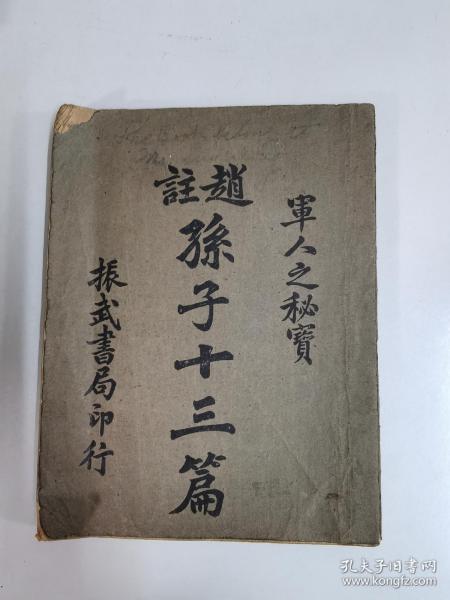 軍人之秘寶
趙註
孫子十三篇
振武書局印行
This Book belong to
孔夫子旧书网
www.kongfz.com